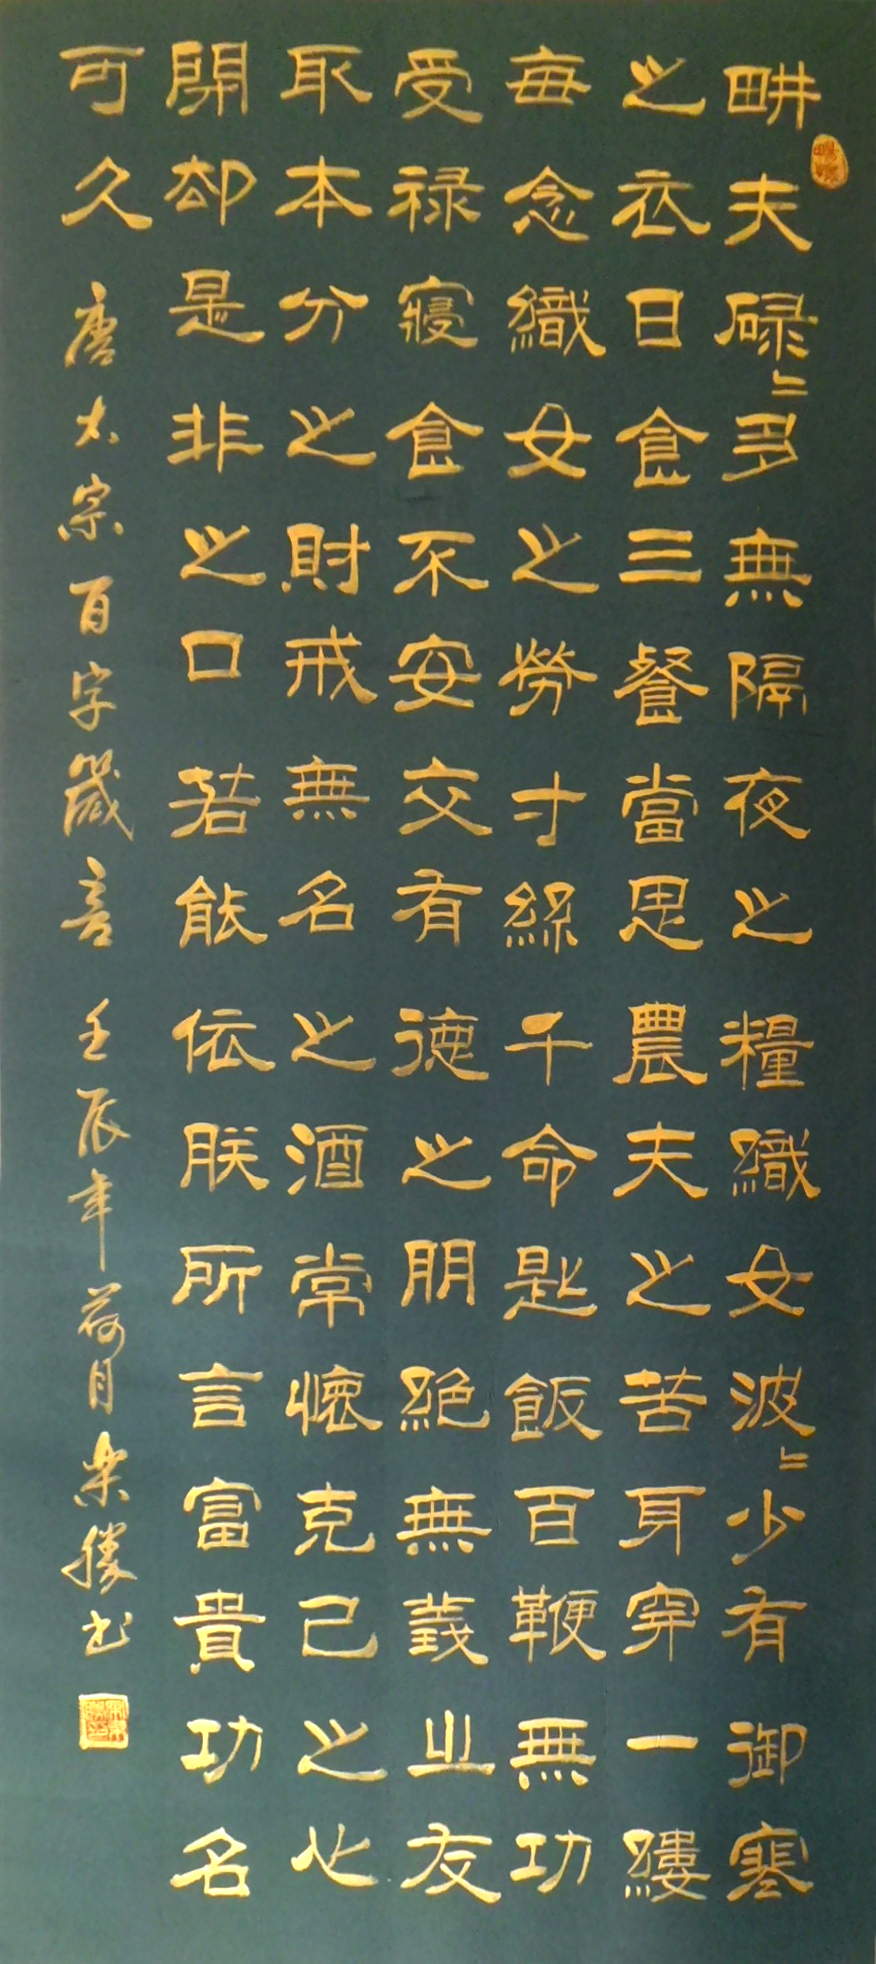 畊夫碌〻多無隔夜之糧織女波〻少有御寒
之衣日食三餐當思農夫之苦身穿一縷
每念織女之勞寸絲千命匙飯百鞭無功
受禄寢食不安交有德之朋絶無義之友
取本分之財戒無名之酒常懷克己之心
閉却是非之口若能依朕所言富貴功名
可久
唐太宗百字箴言 壬辰年荷月樂勝书